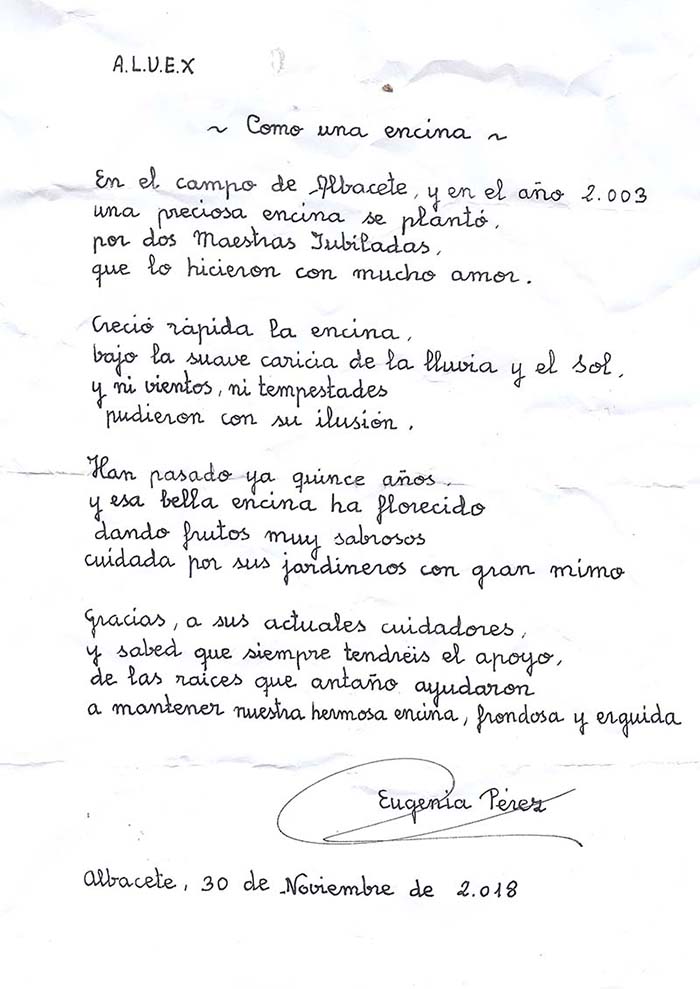 A.L.U.E.X
~ Como una encina ~
En el campo de Albacete, y en el año 2.003
una preciosa encina se plantó,
por dos Maestras Jubiladas,
que lo hicieron con mucho amor.
Creció rápida la encina,
bajo la suave caricia de la lluvia y el sol,
y ni vientos, ni tempestades
pudieron con su ilusión.
Han pasado ya quince años,
y esa bella encina ha florecido
dando frutos muy sabrosos
cuidada por sus jardineros con gran mimo
Gracias, a sus actuales cuidadores,
y sabed que siempre tendréis el apoyo,
de las raíces que antaño ayudaron
a mantener nuestra hermosa encina, frondosa y erguida
Eugenia Pérez
Albacete, 30 de Noviembre de 2.018